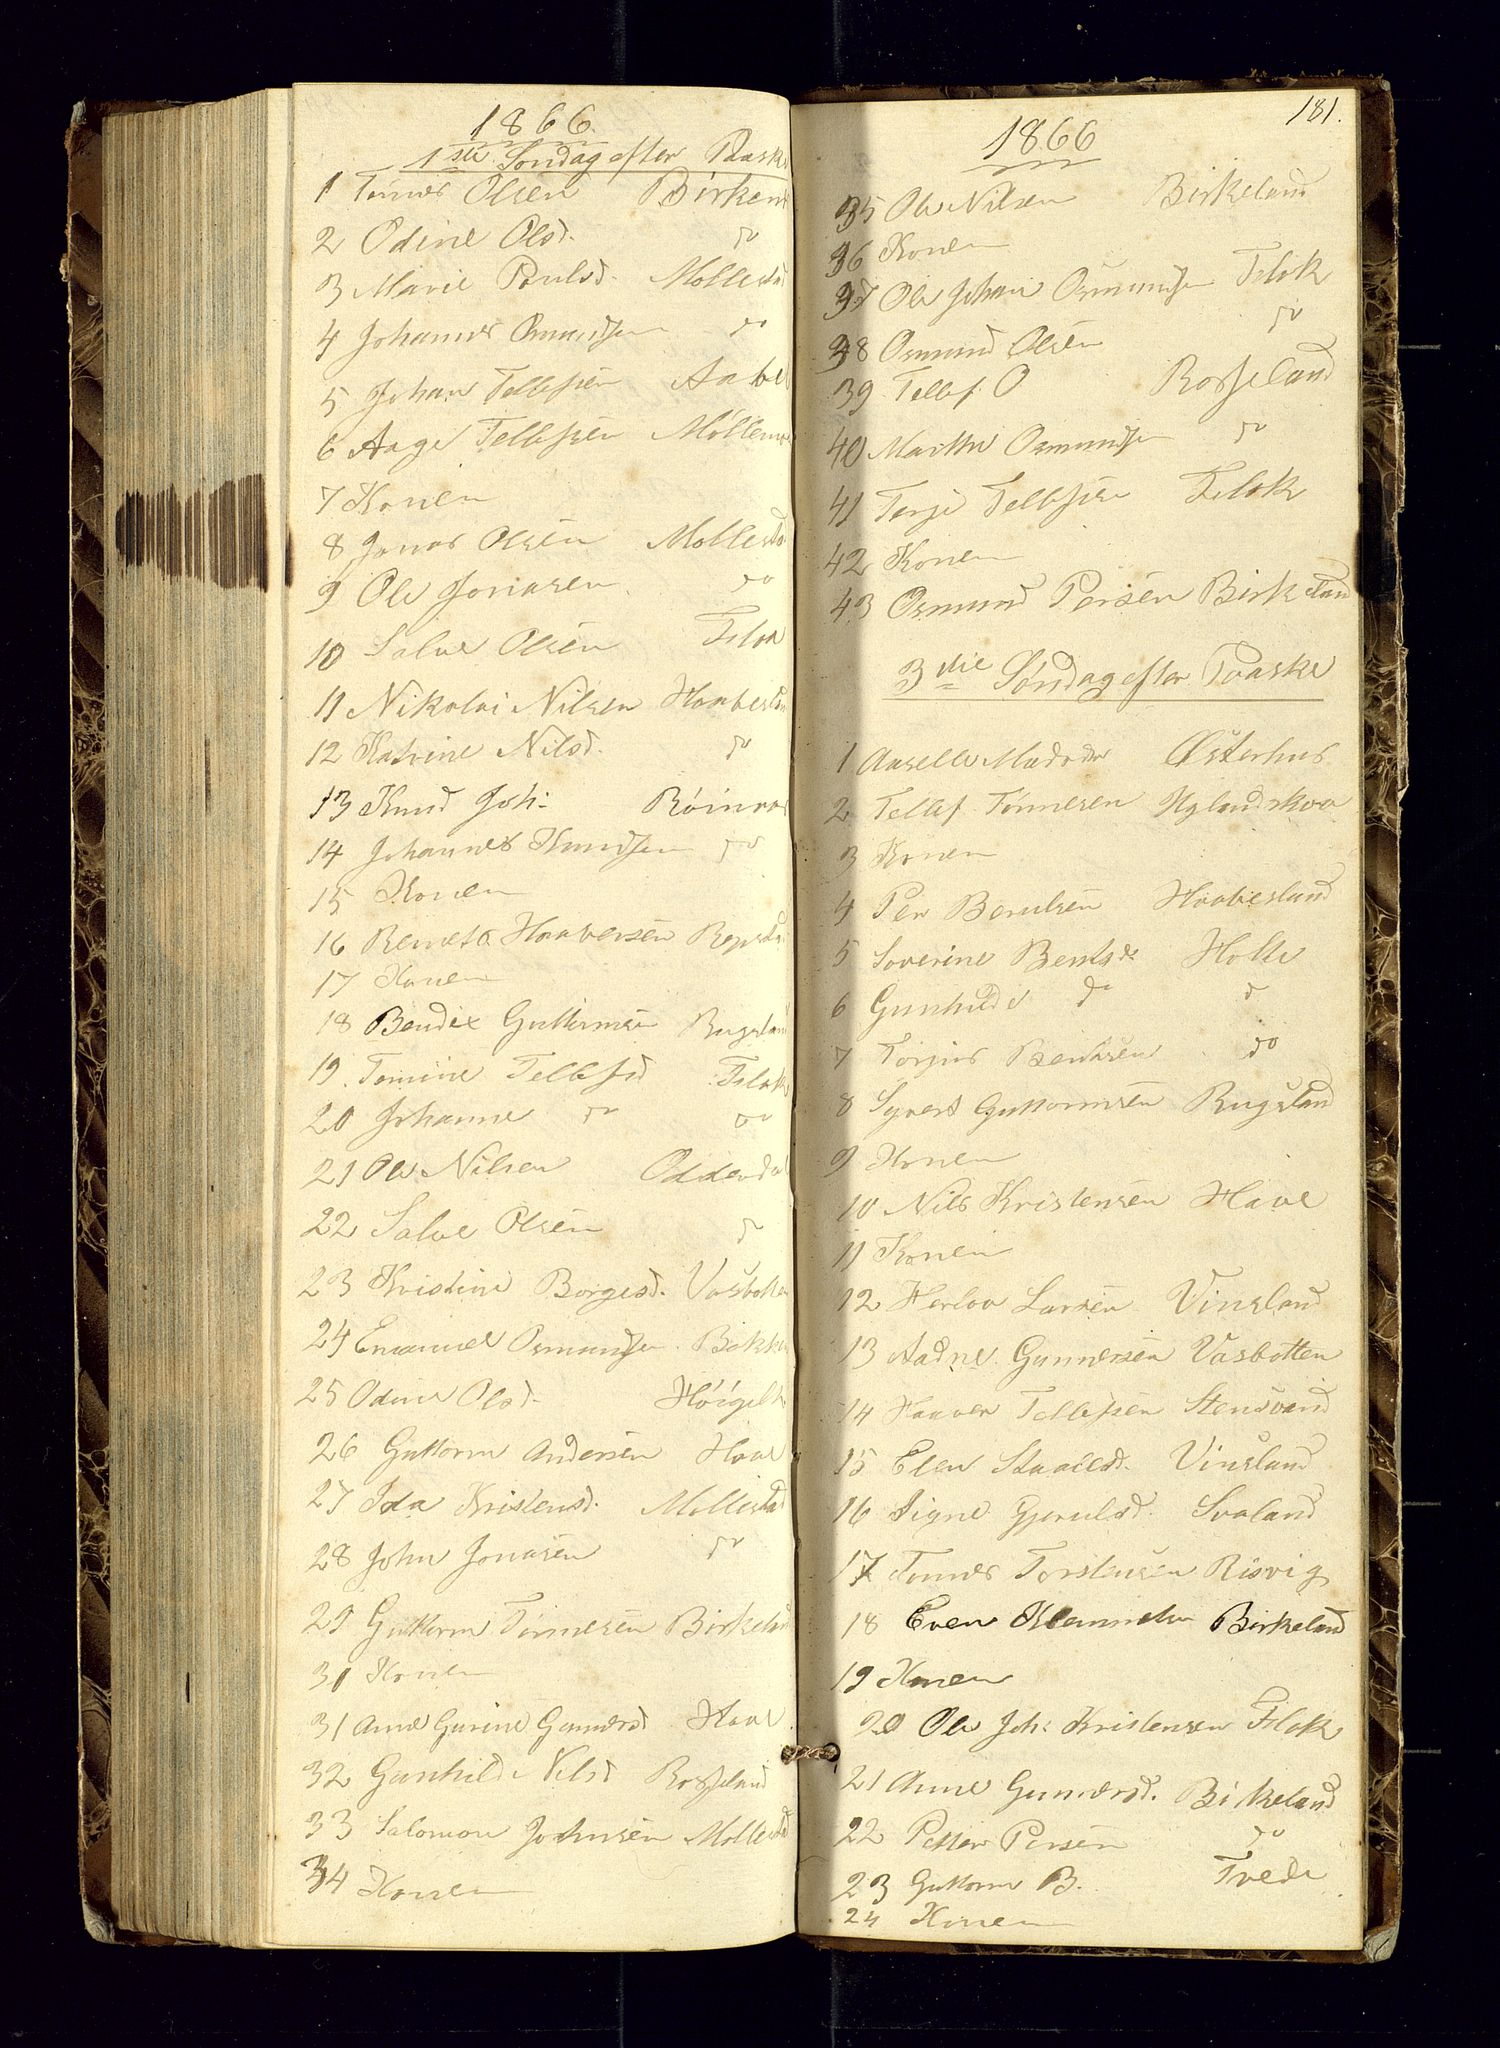 1866.
1ste Søndag efter Paaske
1 Tønnes Olsen Birkenes
2 Odine Olsd. do
3 Marie Paulsd. Mollestad
4 Johannes Omundsen do
5 Johan Tellefsen Aabel
6 Aage Tellefsen Møllemoe
7 Konen
8 Jonas Olsen Mollestad
9 Ole Jonasen do
10 Salve Olsen Flak
11 Nikolai Nilsen Haabesland
12 Katrine Nilsd. do
13 Knud Joh: Røinaas
14 Johannes Knudsen do
15 Konen
16 Haaversen
17 Konen
18 Bendix Guttormsen Rugsland
19 Tomine Tellefsd Flak
20 Johanne do do
21 Ole Nilsen Oddersdal
22 Salve Olsen do
23 Kristine Borgesd. Vasbotten
24 Emanuel Osmundsen
25 Odine Olsd.
26 Guttorm Andersen Have
27 Ida Kristensd. Mollestad
28 John Jonasen do
29 Guttorm Tønnesen Birkeland
30 Konen
31 Anne Gurine Gunnersd Have
32 Gunhilde Nilsd Rosseland
33 Salomon Johnsen Mollestad
34 Konen
181.
1866
35 Ole Nilsen Birkeland
36 Konen
37 Ole Johan Osmundsen Flak
38 Osmund Olsen do
39 Tellef O Rosseland
40 Marthe Osmundsen do
41 Terje Tellefsen Flak
42 Konen
43 Osmund Persen Birkeland
3die Søndag efter Paaske
1 Madsdr Østerhus
2 Tellef Tønnesen Uglandskaa
3 Konen
4 Per Berulsen Haabesland
5 Soverine Bentsd. Holte
6 Gunhilde do d
7 Torjus Bentsen do
8 Syvert Guttormsen Rugsland
9 Konen
10 Nils Kristensen Have
11 Konen
12 Herlov Larsen Vinsland
13 Aadne Gunnersen Vasbotten
14 Haaver Tellefsen Stensvand
15 Elen Staalesd. Vinsland
16 Signe Gjerulsd. Svaland
17 Tønnes Torstensen Risvig
18 Even Klemmetsen Birkeland
19 Konen
20 Ole Joh: Kristensen Flak
21 Anne Gunnersd. Birkeland
22 Petter Persen do
23 Guttorm B. Tvede
24 Konen